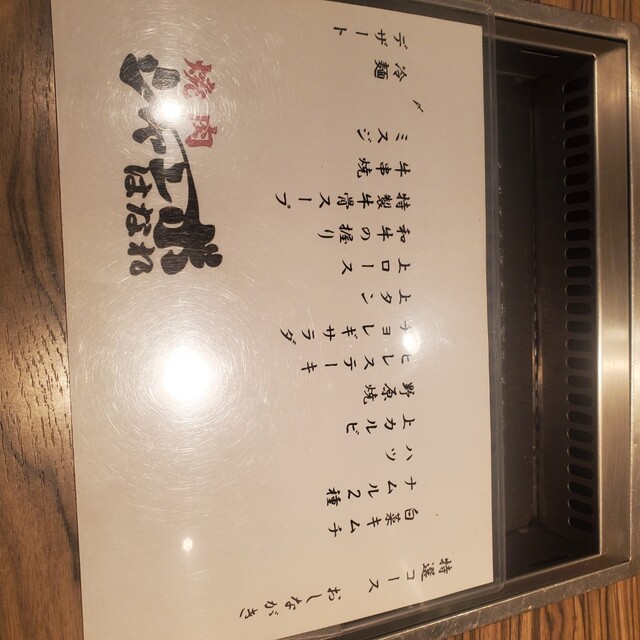 特選コース おしながき
白菜キムチ
ナムル2種
ハツ
上カルビ
野原焼
ヒレステーキ
チョレギサラダ
上タン
上ロース
和牛の握り
特製牛骨スープ
牛串焼
ミスジ
〆
冷麺
デザート
焼肉
ジャンボ
はなれ